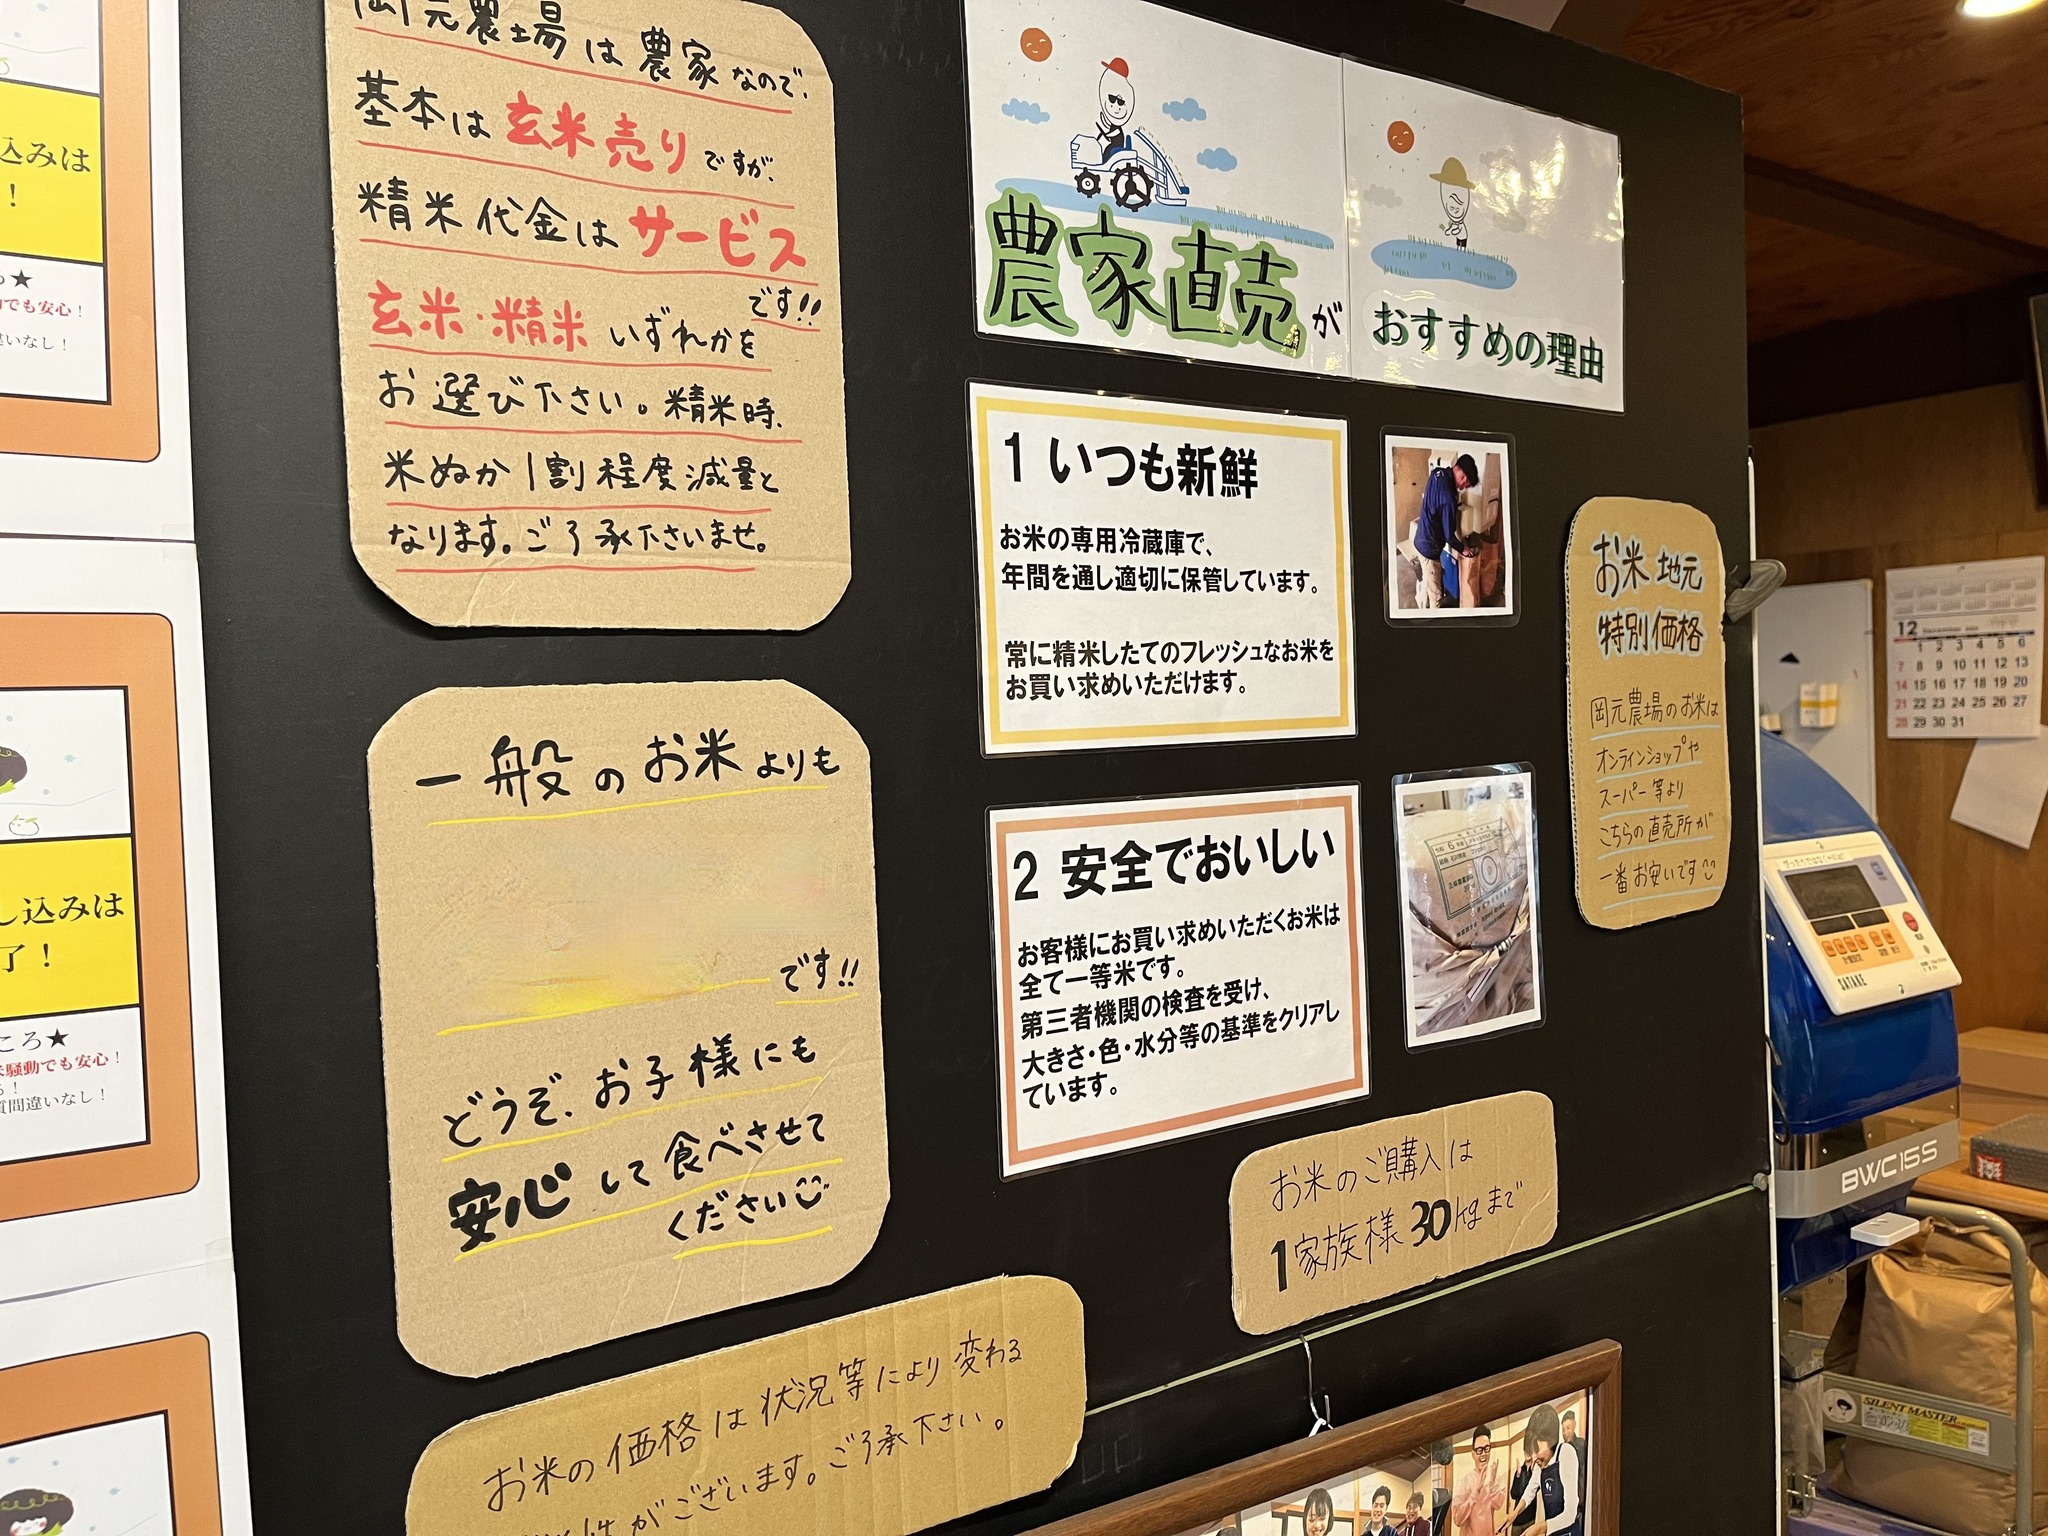 込みは
！
★
でも安心！
違いなし！
し込みは
了！
ころ★
米騒動でも安心！
る！
質間違いなし！
岡元農場は農家なので、
基本は玄米売りですが、
精米代金はサービス
です!!
玄米・精米いずれかを
お選び下さい。精米時、
米ぬか1割程度減量と
なります。ご了承下さいませ。
一般のお米よりも
です!!
どうぞ、お子様にも
安心して食べさせて
ください
お米の価格は状況等により変わる
がございます。ご了承下さい。
農家直売が
おすすめの理由
1 いつも新鮮
お米の専用冷蔵庫で、
年間を通し適切に保管しています。
常に精米したてのフレッシュなお米を
お買い求めいただけます。
2 安全でおいしい
お客様にお買い求めいただくお米は
全て一等米です。
第三者機関の検査を受け、
大きさ・色・水分等の基準をクリアし
ています。
お米のご購入は
1家族様30kgまで
お米地元
特別価格
岡元農場のお米は
オンラインショップや
スーパー等より
こちらの直売所が
一番お安いです
12
1 2 3 4 5 6
7 8 9 10 11 12 13
14 15 16 17 18 19 20
21 22 23 24 25 26 27
28 29 30 31
SATAKE
BWC15S
SILENT MASTER